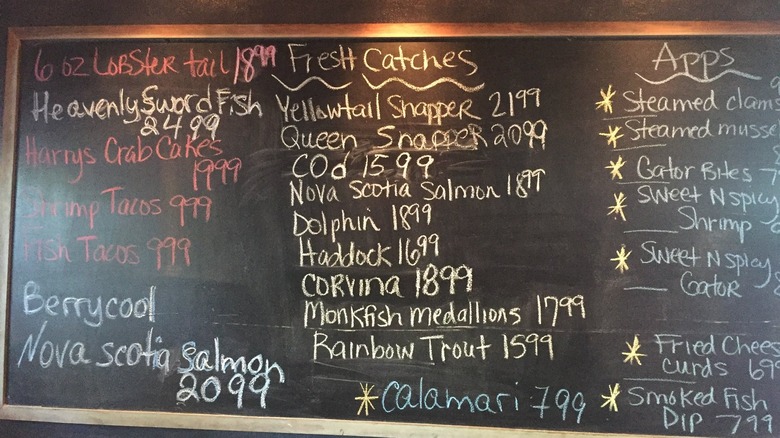 6 oz Lobster tail 18 99
Heavenly Sword Fish
24 99
Harrys Crab Cakes
19 99
Shrimp Tacos 999
Fish Tacos 999
Berrycool
Nova scotia Salmon
20 99
Fresh Catches
Yellowtail Snapper 21 99
Queen Snapper 20 99
COd 15 99
Nova Scotia Salmon 18 99
Dolphin 18 99
Haddock 16 99
CORVINA 18 99
Monkfish medallions 17 99
Rainbow Trout 15 99
Calamari 7 99
Apps
Steamed clam
Steamed musse
Gator Bites 7
Sweet N spicy
Shrimp
Sweet N spicy
Gator
Fried Chees
curds 6 9
Smoked Fish
DIP 7 99